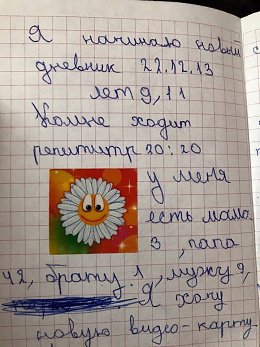 Я начинаю новый
дневник 22.12.13
лет 9, 11
Комне ходит
репититр 20:20
у меня
есть мама.
3 , папа
42, брату 1, мужу 9,
Я хочу
новую видео-карту